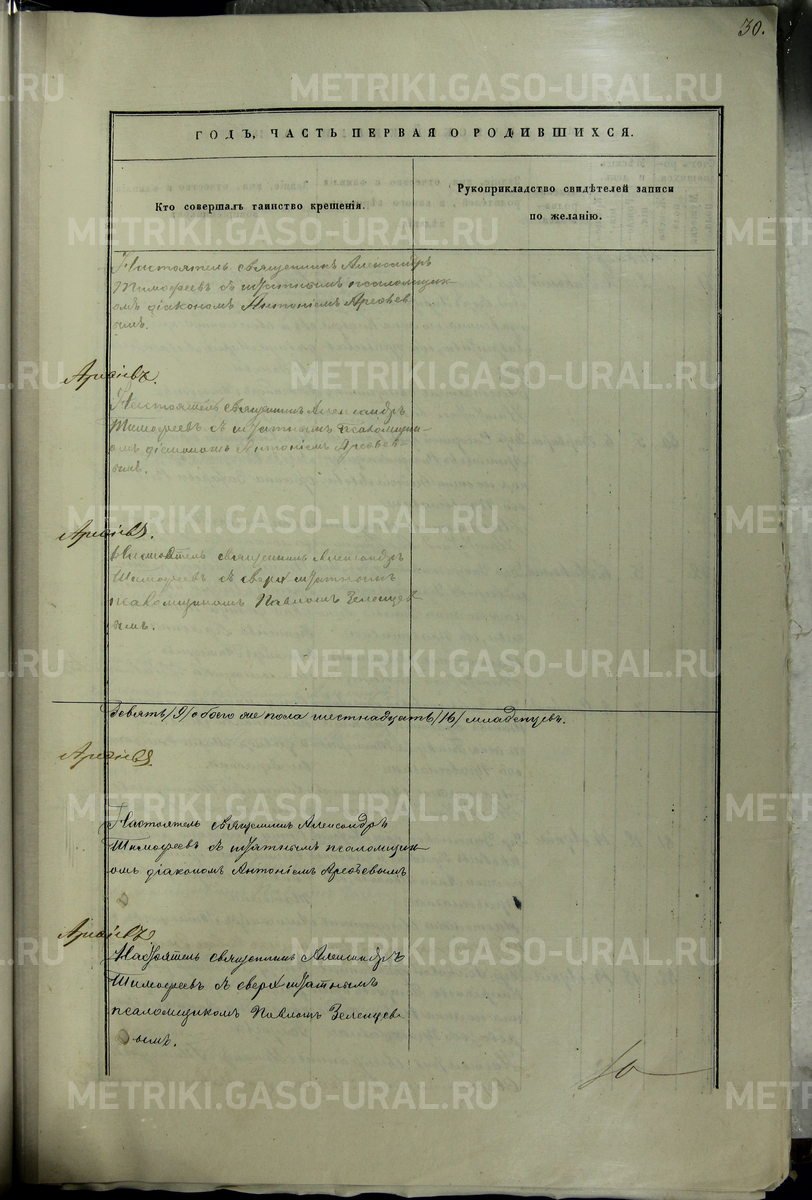 30.
METRIKI.GASO-URAL.RU
ГОДЪ, ЧАСТЬ ПЕРВАЯ О РОДИВШИХСЯ.
Кто совершалъ таинство крещенія.
Рукоприкладство свидѣтелей записи
по желанію.
Настоятель священникъ Александръ
Тимофеевъ съ штатнымъ псаломщик-
омъ діакономъ Антоніемъ
ымъ.
METRIKI.GASO-URAL.RU
Настоятель священникъ Александръ
Тимофеевъ съ штатнымъ псаломщик-
омъ діакономъ Антоніемъ
ымъ.
METRIKI.GASO-URAL.RU
Настоятель священникъ Александръ
Тимофеевъ съ сверхштатнымъ
псаломщикомъ Павломъ Зеленцев-
ымъ.
METRIKI.GASO-URAL.RU
Девять /9/ обоего же пола шестнадцать /16/ младенцевъ.
METRIKI.GASO-URAL.RU
Настоятель священникъ Александръ
Тимофеевъ съ штатнымъ псаломщик-
омъ діакономъ Антоніемъ
METRIKI.GASO-URAL.RU
Настоятель священникъ Александръ
Тимофеевъ съ сверхштатнымъ
псаломщикомъ Павломъ Зеленцев-
ымъ.
METRIKI.GASO-URAL.RU